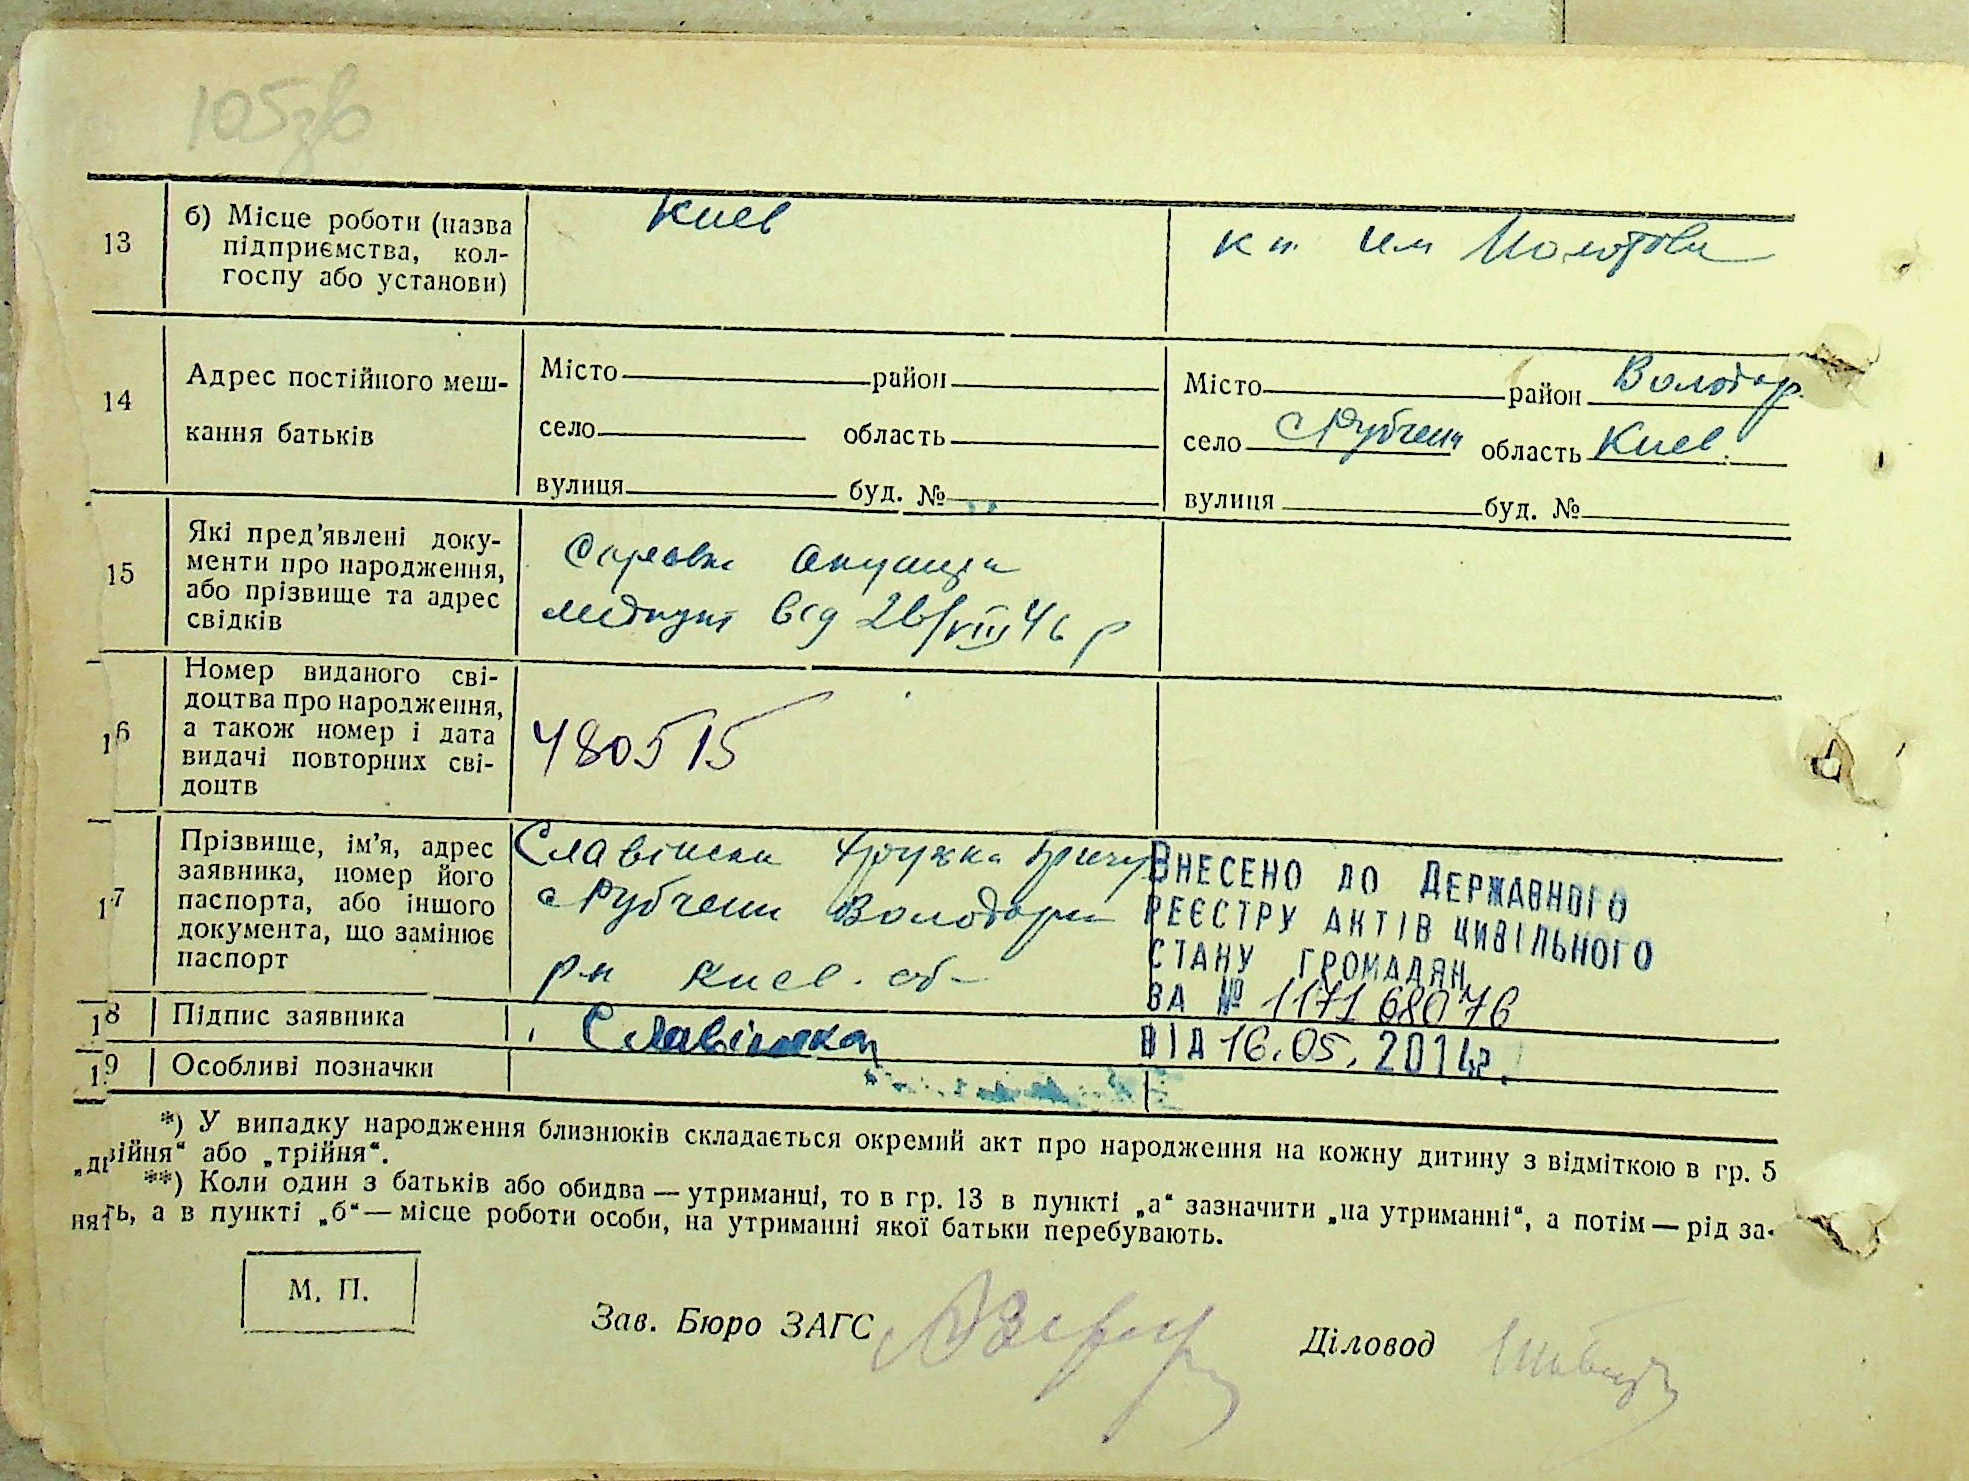 105зв
13
б) Місце роботи (назва
підприємства, кол-
госпу або установи)
Киев
к п. им Молотова
14
Адрес постійного меш-
кання батьків
Місто район
село область
вулиця буд. №
Місто район Володар.
село с Рубчени область Киев.
вулиця буд. №
15
Які пред'явлені доку-
менти про народження,
або прізвище та адрес
свідків
Справка Акушера
медпункт від 26/VIII 46 р
16
Номер виданого сві-
доцтва про народження,
а також номер і дата
видачі повторних сві-
доцтв
480515
17
Прізвище, ім'я, адрес
заявника, номер його
паспорта, або іншого
документа, що замінює
паспорт
Славінска
с Рубчени Володарск
р-н Киев. об-
Внесено до Державного
реєстру актів цивільного
стану громадян
за № 117168076
від 16.05.2014р.
18
Підпис заявника
Славінска
19
Особливі позначки
*) У випадку народження близнюків складається окремий акт про народження на кожну дитину з відміткою в гр. 5
„двійня“ або „трійня“.
**) Коли один з батьків або обидва — утриманці, то в гр. 13 в пункті „а“ зазначити „на утриманні“, а потім — рід за-
нять, а в пункті „б“ — місце роботи особи, на утриманні якої батьки перебувають.
М. П.
Зав. Бюро ЗАГС
Діловод